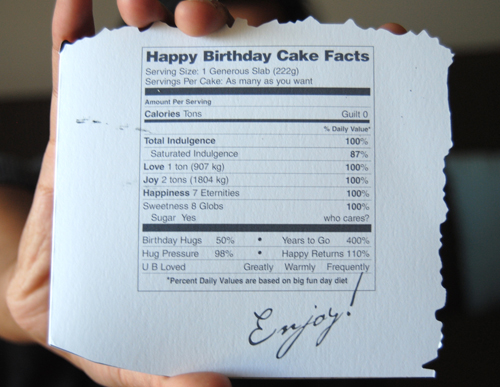 Happy Birthday Cake Facts
Serving Size: 1 Generous Slab (222g)
Servings Per Cake: As many as you want
Amount Per Serving
Calories Tons Guilt 0
% Daily Value*
Total Indulgence 100%
Saturated Indulgence 87%
Love 1 ton (907 kg) 100%
Joy 2 tons (1804 kg) 100%
Happiness 7 Eternities 100%
Sweetness 8 Globs 100%
Sugar Yes who cares?
Birthday Hugs 50% • Years to Go 400%
Hug Pressure 98% • Happy Returns 110%
U B Loved Greatly Warmly Frequently
*Percent Daily Values are based on big fun day diet
Enjoy!